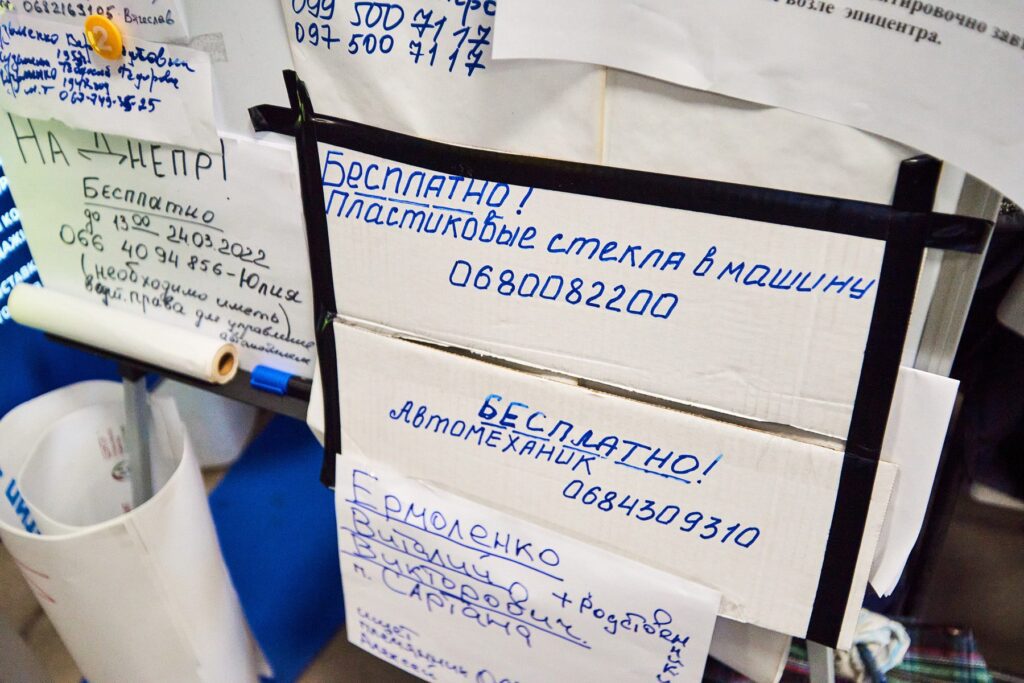 0682163105 Вячеслав
067-749-75-25
НА ДНЕПР!
Бесплатно
до 13 00 24.03.2022
066 4094 856 - Юлия
(необходимо иметь
права для управления
автомобилем)
099 500 71 17
097 500 71 17
возле эпицентра.
Бесплатно!
Пластиковые стекла в машину
0680082200
БЕСПЛАТНО!
Автомеханик
0684309310
Ермоленко
Виталий
Викторович + родственники
п. Сартана
ищет
племянник
Алексей